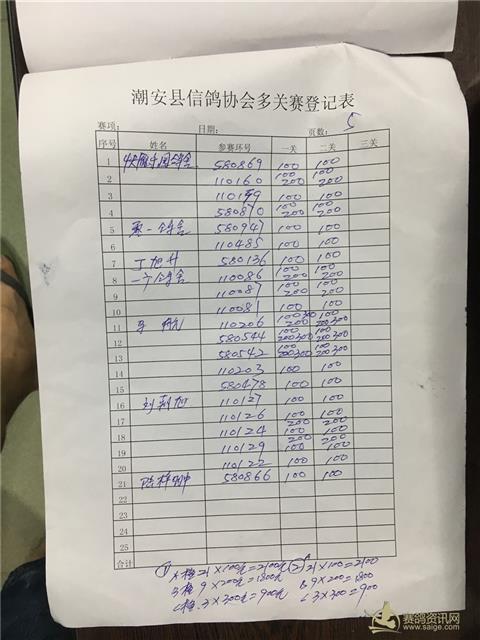 潮安县信鸽协会多关赛登记表
赛项: 日期: 页数: 5
序号 姓名 参赛环号 一关 二关 三关
1 580869 100 100
2 110160 100 200 100 200
3 110159 100 100
4 580870 100 200 100 200
5 第一鸽舍 580941 100 100
6 110485 100 100
7 丁旭升 580136 100 100
8 一宁鸽舍 110086 100 200 100 200
9 110087 100 200 100 200
10 110081 100 100
11 110206 100 200 300 100 200 300
12 580544 100 200 300 100 200 300
13 580542 100 200 300 100 200 300
14 110203 100 100
15 580478 100 100
16 110127 100 100
17 110126 100 200 100 200
18 110124 100 200 100 200
19 110129 100 100
20 110122 100 100
21 580866 100 100
22
23
24
25
合计
① A检 21×100元=2100元 ② A 21×100=2100
B检 9×200元=1800元 B 9×200=1800
C检 3×300元=900元 C 3×300=900
赛鸽资讯网
www.saige.com